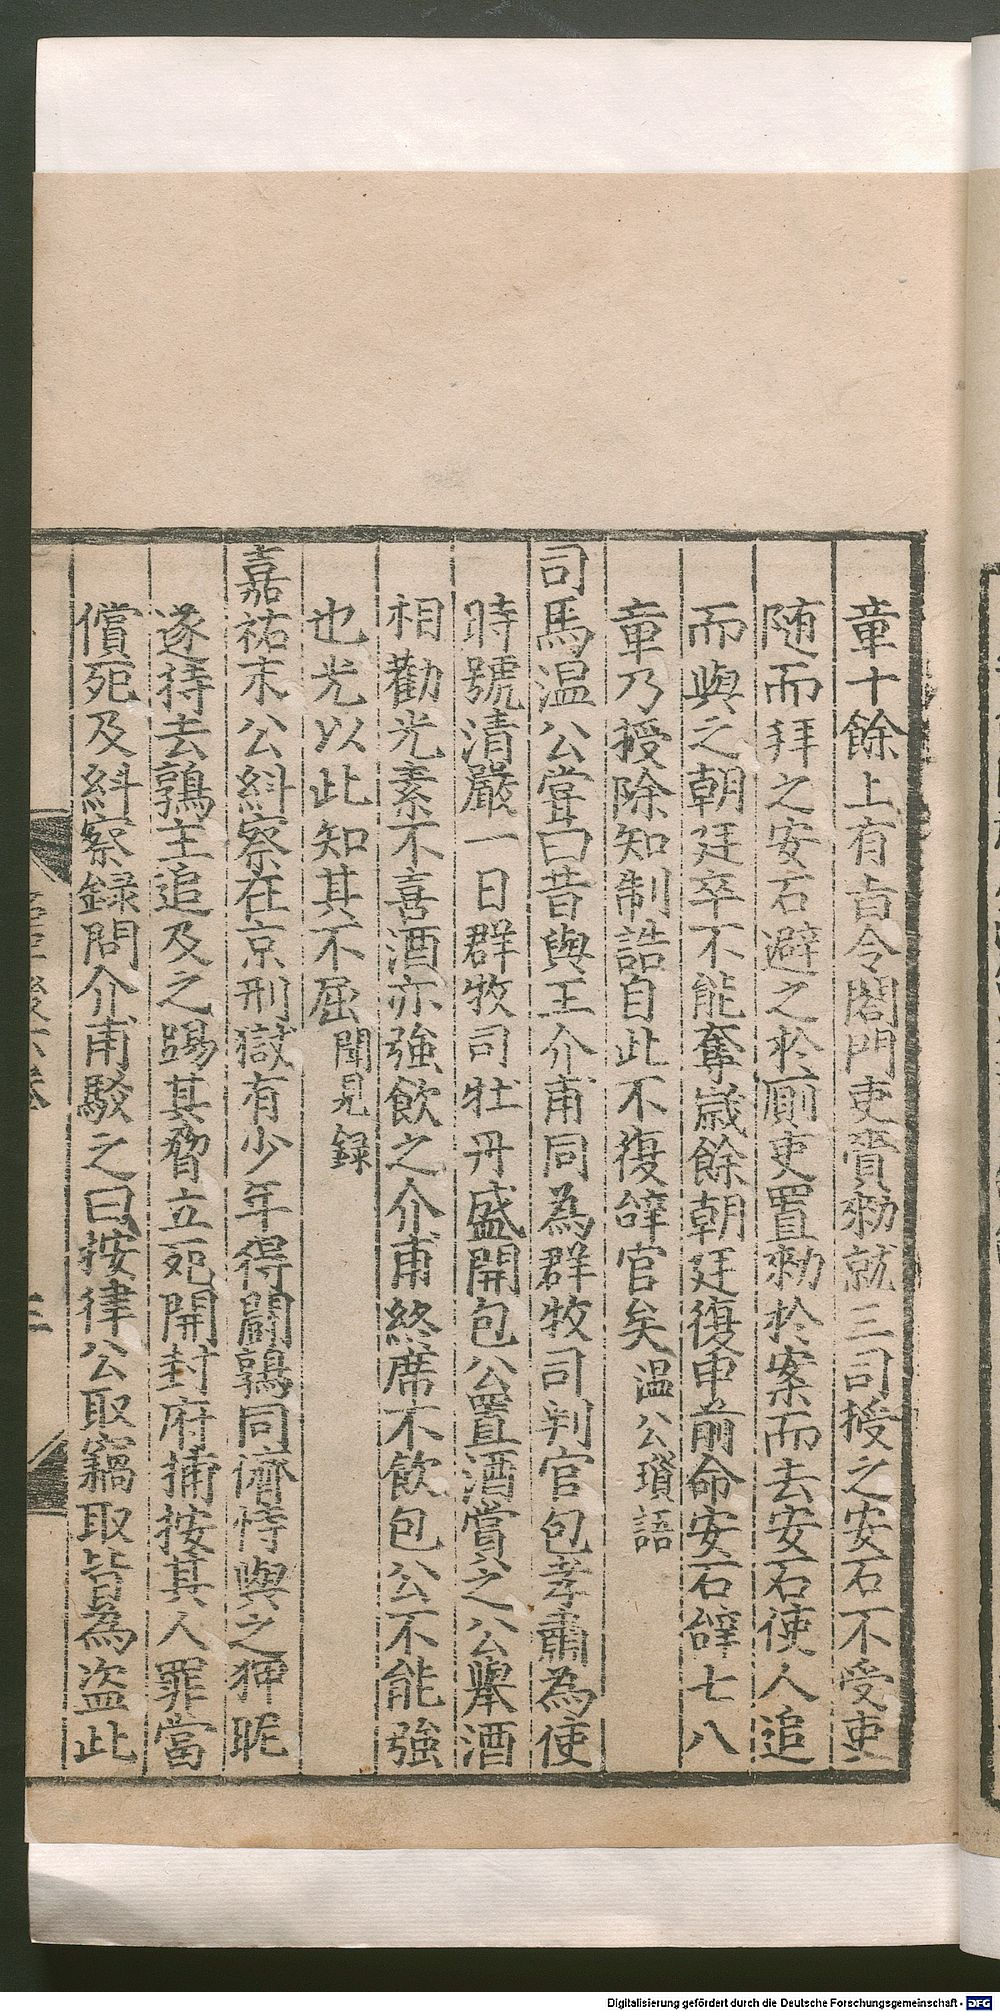 章十餘上有旨令閤門吏賫勑就三司授之安石不受吏
随而拜之安石避之於厠吏置勑於案而去安石使人追
而與之朝廷卒不能奪歲餘朝廷復申前命安石辝七八
章乃授除知制誥自此不復辝官矣温公瑣語
司馬温公嘗曰昔與王介甫同為群牧司判官包孝肅為使
時號清嚴一日群牧司牡丹盛開包公置酒賞之公舉酒
相勸光素不喜酒亦強飲之介甫終席不飲包公不能強
也光以此知其不屈聞見録
嘉祐末公糾察在京刑獄有少年得闘鶉同儕恃與之狎昵
遂持去鶉主追及之踢其脅立死開封府捕按其人罪當
償死及糾察録問介甫駁之曰按律公取竊取皆為盗此
三
Digitalisierung gefördert durch die Deutsche Forschungsgemeinschaft - DFG